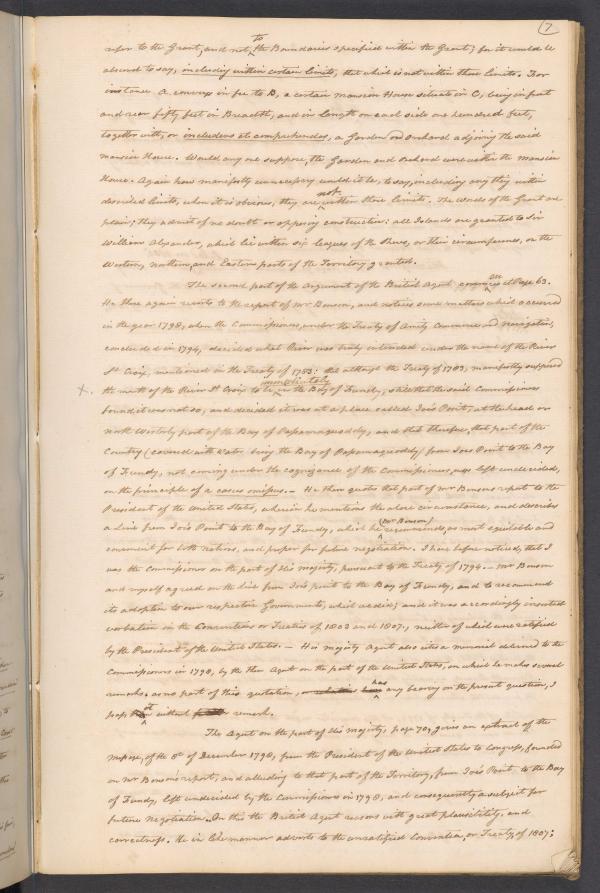 7
refer to the Grant, and not to the Boundaries specified within the Grant; for it would be
absurd to say, including within certain limits, that which is not within those limits. For
instance A. conveys in fee to B, a certain mansion House situate in C, being in front
and rear fifty feet in Breadth, and in length on each side one hundred feet,
together with, or includens et comprehendens, a Garden and Orchard adjoining the said
mansion House. Would any one suppose, the Garden and Orchard were within the mansion
House. Again how manifestly unnecessary would it be, to say, including any thing within
described limits, when it is obvious, they are not within those limits. The words of the Grant are
plain; they admit of no doubt or opposing construction: all Islands are granted to Sir
William Alexander, which lie within six leagues of the Shores, or their circumferences, on the
Western, northern, and Eastern parts of the Territory granted.
The second part of the Argument of the British Agent commences at Page 63.
He there again reverts to the report of Mr Benson, and notices some matters which occurred
in the year 1798, when the Commissioners, under the Treaty of Amity Commerce and Navigation,
concluded in 1794, decided what River was truly intended under the name of the River
St Croix, mentioned in the Treaty of 1783: that although the Treaty of 1783, manifestly supposed
x the mouth of the River St Croix to be immediately in the Bay of Fundy, that the said Commissioners
found it was not so, and decided it was at a place called Joe's Point, at the head or
north Westerly part of the Bay of Passamaquoddy, and that therefore, that part of the
Country (covered with Water being the Bay of Passamaquoddy) from Joe's Point to the Bay
of Fundy, not coming under the cognizance of the Commissioners, was left undecided,
on the principle of a casus omissus.— He then quotes that part of Mr Benson's report to the
President of the United States, wherein he mentions the above circumstance, and describes
a Line from Joe's Point to the Bay of Fundy, which he (Mr Benson) recommends, as most equitable and
convenient for both nations, and proper for future negotiation. I have before noticed, that I
was the Commissioner on the part of His Majesty, pursuant to the Treaty of 1794.— Mr Benson
and myself agreed on the Line from Joe's point to the Bay of Fundy, and to recommend
its adoption to our respective Governments, which we did; and it was accordingly inserted
verbatim in the Conventions or Treaties of 1803 and 1807, neither of which were ratified
by the President of the United States.— His Majesty's Agent also cites a memorial delivered to the
Commissioners in 1798, by the then Agent on the part of the United States, on which he makes several
remarks. as no part of this quotation, has any bearing on the present question, I
pass it without remark.
The Agent on the part of His Majesty, page 70, gives an extract of the
message, of the 8th of December 1798, from the President of the United States to Congress, founded
on Mr Benson's report, and alluding to that part of the Territory, from Joe's Point to the Bay
of Fundy, left undecided by the Commissioners in 1798, and consequently a subject for
future Negotiation. On this the British Agent reasons with great plausibility, and
correctness. He in like manner adverts to the unratified Convention, or Treaty, of 1807;